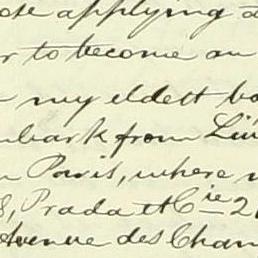 ose applying a
r to become an
my eldest bo
mbark from Liv
n Paris, where
8, Prada et Cie 2
Avenue des Cham